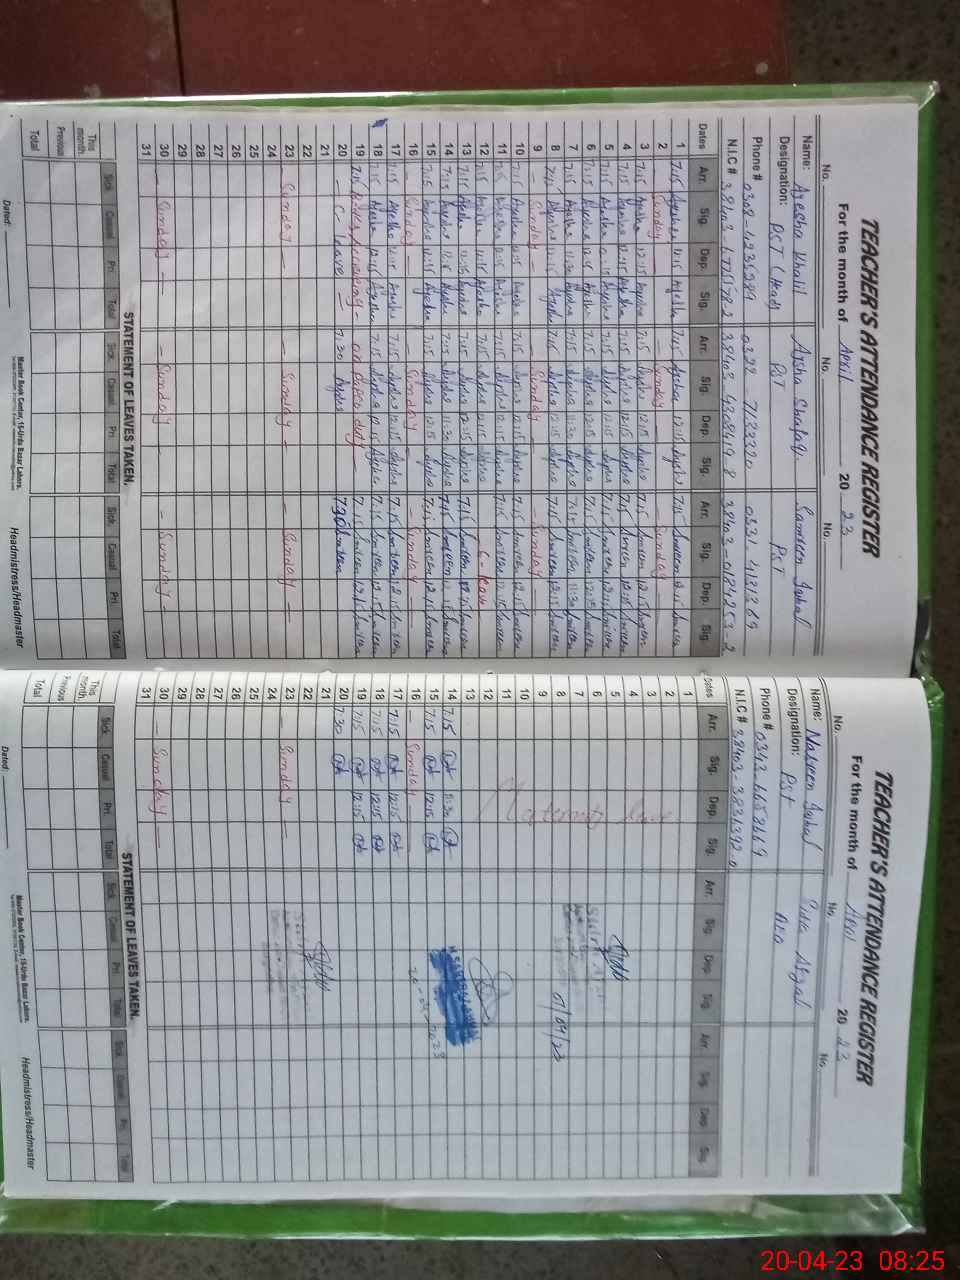 TEACHER'S ATTENDANCE REGISTER
For the month of April 20 23
No. No. No.
Name: Ayesha Khalil Aisha Shafaq. Samreen Iqbal
Designation: PST (Head) PST PST
Phone # 0308-4235289 0322 7132320 0331-4131369
N.I.C # 38403
Dates Arr. Sig. Dep. Sig. Arr. Sig. Dep. Sig. Arr. Sig. Dep. Sig.
1 7:15 Ayesha 12:15 Ayesha 7:15 Aysha 12:15 Aysha 7:15 Samreen 12:15 Samreen
2 Sunday Sunday Sunday
3 7:15 Ayesha 12:15 Ayesha 7:15 Aysha 12:15 Aysha 7:15 Samreen 12:15 Samreen
4 7:15 Ayesha 12:15 Ayesha 7:15 Aysha 12:15 Aysha 7:15 Samreen 12:15 Samreen
5 7:15 Ayesha 12:15 Ayesha 7:15 Aysha 12:15 Aysha 7:15 Samreen 12:15 Samreen
6 7:15 Ayesha 12:15 Ayesha 7:15 Aysha 12:15 Aysha 7:15 Samreen 12:15 Samreen
7 7:15 Ayesha 11:30 Ayesha 7:15 Aysha 11:30 Aysha 7:15 Samreen 11:30 Samreen
8 7:15 Ayesha 12:15 Ayesha 7:15 Aysha 12:15 Aysha 7:15 Samreen 12:15 Samreen
9 - Sunday - - Sunday - - Sunday -
10 7:15 Ayesha 12:15 Ayesha 7:15 Aysha 12:15 Aysha 7:15 Samreen 12:15 Samreen
11 7:15 Ayesha 12:15 Ayesha 7:15 Aysha 12:15 Aysha 7:15 Samreen 12:15 Samreen
12 7:15 Ayesha 12:15 Ayesha 7:15 Aysha 12:15 Aysha C-leave
13 7:15 Ayesha 12:15 Ayesha 7:15 Aysha 12:15 Aysha 7:15 Samreen 12:15 Samreen
14 7:15 Ayesha Ayesha 7:15 Aysha 11:30 Aysha Samreen Samreen
15 7:15 Ayesha 12:15 Ayesha 7:15 Aysha 12:15 Aysha Samreen 12:15 Samreen
16 - Sunday - - Sunday - - Sunday -
17 7:15 Ayesha 12:15 Ayesha 7:15 Aysha 12:15 Aysha 7:15 Samreen 12:15 Samreen
18 7:15 Ayesha 12:15 Ayesha 7:15 Aysha 12:15 Aysha 7:15 Samreen 12:15 Samreen
19 7:15 duty 7:15 Samreen 12:15 Samreen
20 - C - leave - 7:30 Aysha 7:30 Samreen
21
22
23 Sunday - - Sunday - - Sunday -
24
25
26
27
28
29
30 - Sunday - - Sunday - - Sunday -
31
STATEMENT OF LEAVES TAKEN.
Sick Casual Pri. Total Sick. Casual Pri. Total Sick. Casual Pri. Total
This month.
Previous
Total
Dated: Master Book Center, 15-Urdu Bazar Lahore. Headmistress/Headmaster
TEACHER'S ATTENDANCE REGISTER
For the month of April 20 23
No. No. No.
Name: Nasreen Iqbal Afzal
Designation: PST AEO
Phone # 0343-6658669
N.I.C # 38403-3831392-0
Dates Arr. Sig. Dep. Sig. Arr. Sig. Dep. Sig. Arr. Sig. Dep. Sig.
1
2
3
4
5
6
7
8 01/04/23
9
10
11
12
13
Maternity leave
14 7:15 11:30
15 7:15 12:15
16 - Sunday - 20-04-2023
17 7:15 12:15
18 7:15 12:15
19 7:15 12:15
20 7:30
21
22
23 - Sunday -
24
25
26
27
28
29
30 - Sunday -
31
STATEMENT OF LEAVES TAKEN.
Sick Casual Pri. Total Sick. Casual Pri. Total Sick. Casual Pri. Total
This month.
Previous
Total
Dated: Master Book Center, 15-Urdu Bazar Lahore. Headmistress/Headmaster
20-04-23 08:25